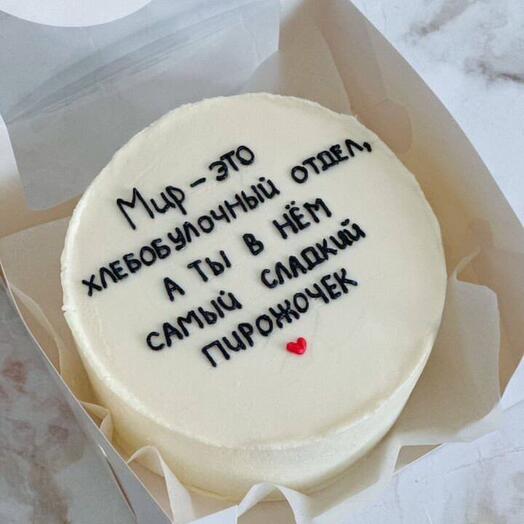 Мир – ЭТО
ХЛЕБОБУЛОЧНЫЙ ОТДЕЛ,
А ТЫ В НЁМ
САМЫЙ СЛАДКИЙ
ПИРОЖОЧЕК